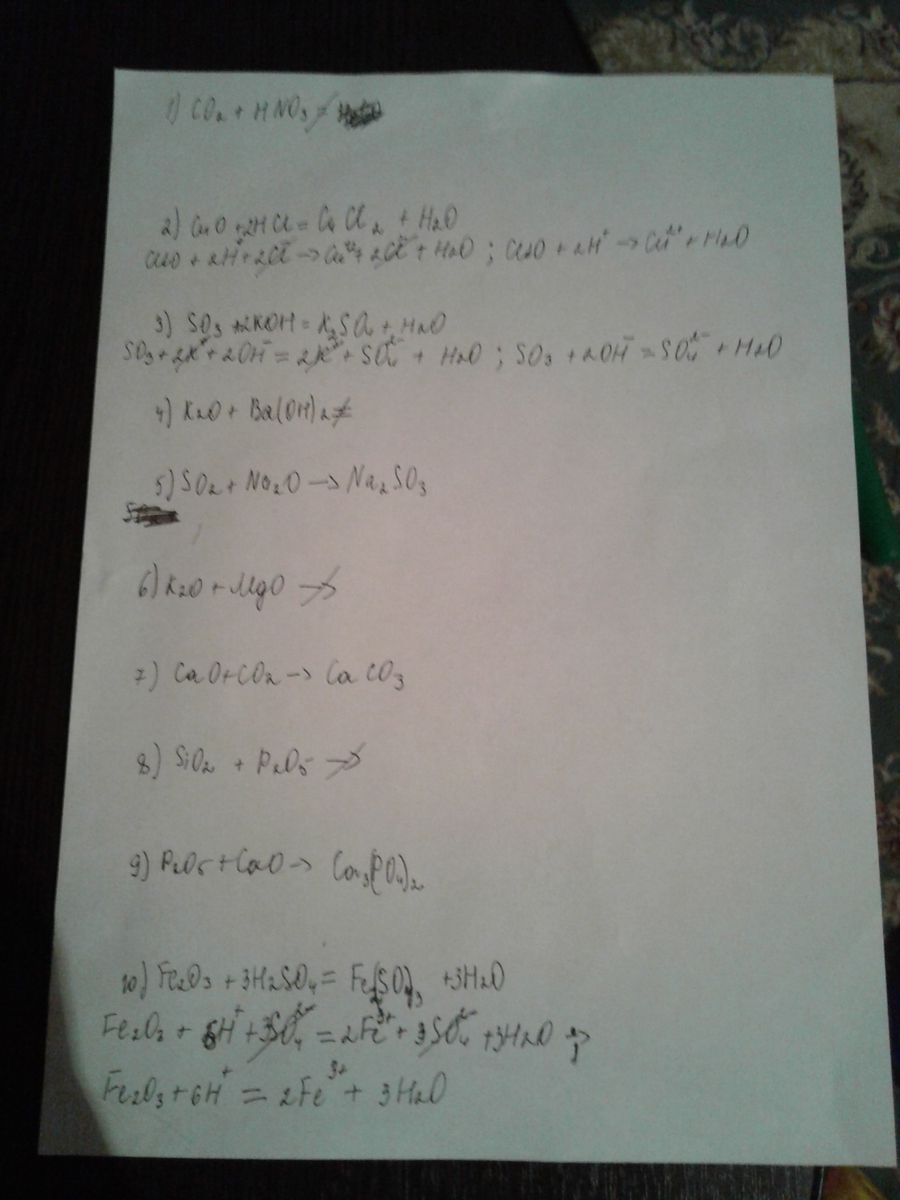 1) CO₂ + HNO₃ ≠
2) CuO + 2HCl = CuCl₂ + H₂O
CuO + 2H⁺ + 2Cl⁻ → Cu²⁺ + 2Cl⁻ + H₂O ; CuO + 2H⁺ → Cu²⁺ + H₂O
3) SO₃ + 2KOH = K₂SO₄ + H₂O
SO₃ + 2K⁺ + 2OH⁻ = 2K⁺ + SO₄²⁻ + H₂O ; SO₃ + 2OH⁻ = SO₄²⁻ + H₂O
4) K₂O + Ba(OH)₂ ≠
5) SO₂ + Na₂O → Na₂SO₃
6) K₂O + MgO ↛
7) CaO + CO₂ → CaCO₃
8) SiO₂ + P₂O₅ ↛
9) P₂O₅ + CaO → Ca₃(PO₄)₂
10) Fe₂O₃ + 3H₂SO₄ = Fe₂(SO₄)₃ + 3H₂O
Fe₂O₃ + 6H⁺ + 3SO₄²⁻ = 2Fe³⁺ + 3SO₄²⁻ + 3H₂O ;
Fe₂O₃ + 6H⁺ = 2Fe³⁺ + 3H₂O